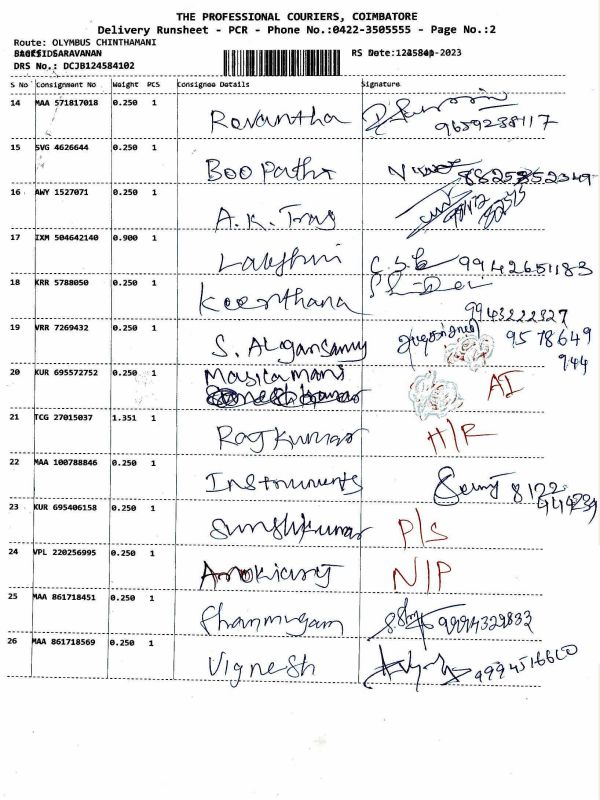 THE PROFESSIONAL COURIERS, COIMBATORE
Delivery Runsheet - PCR - Phone No.:0422-3505555 - Page No.:2
Route: OLYMBUS CHINTHAMANI
SARAVANAN RS Date: -2023
DRS No.: DCJB124584102
S No Consignment No Weight PCS Consignee Details Signature
14 MAA 571817018 0.250 1 Revantha 9659238117
15 SVG 4626644 0.250 1 Boopathi
16 AWY 1527071 0.250 1 A.K.
17 IXM 504642140 0.900 1 Lakshmi 9942651183
18 KRR 5788050 0.250 1 Keerthana
9943222327
19 VRR 7269432 0.250 1 S. Algansamy 9578649
944
20 KUR 695572752 0.250 1 Masilamani AI
21 TCG 27015037 1.351 1 Rajkumar H/R
22 MAA 100788846 0.250 1 Instruments 8122
23 KUR 695406158 0.250 1 P/S
24 VPL 220256995 0.250 1 N/P
25 MAA 861718451 0.250 1 Shanmugam 9994329832
26 MAA 861718569 0.250 1 Vignesh 9994516600